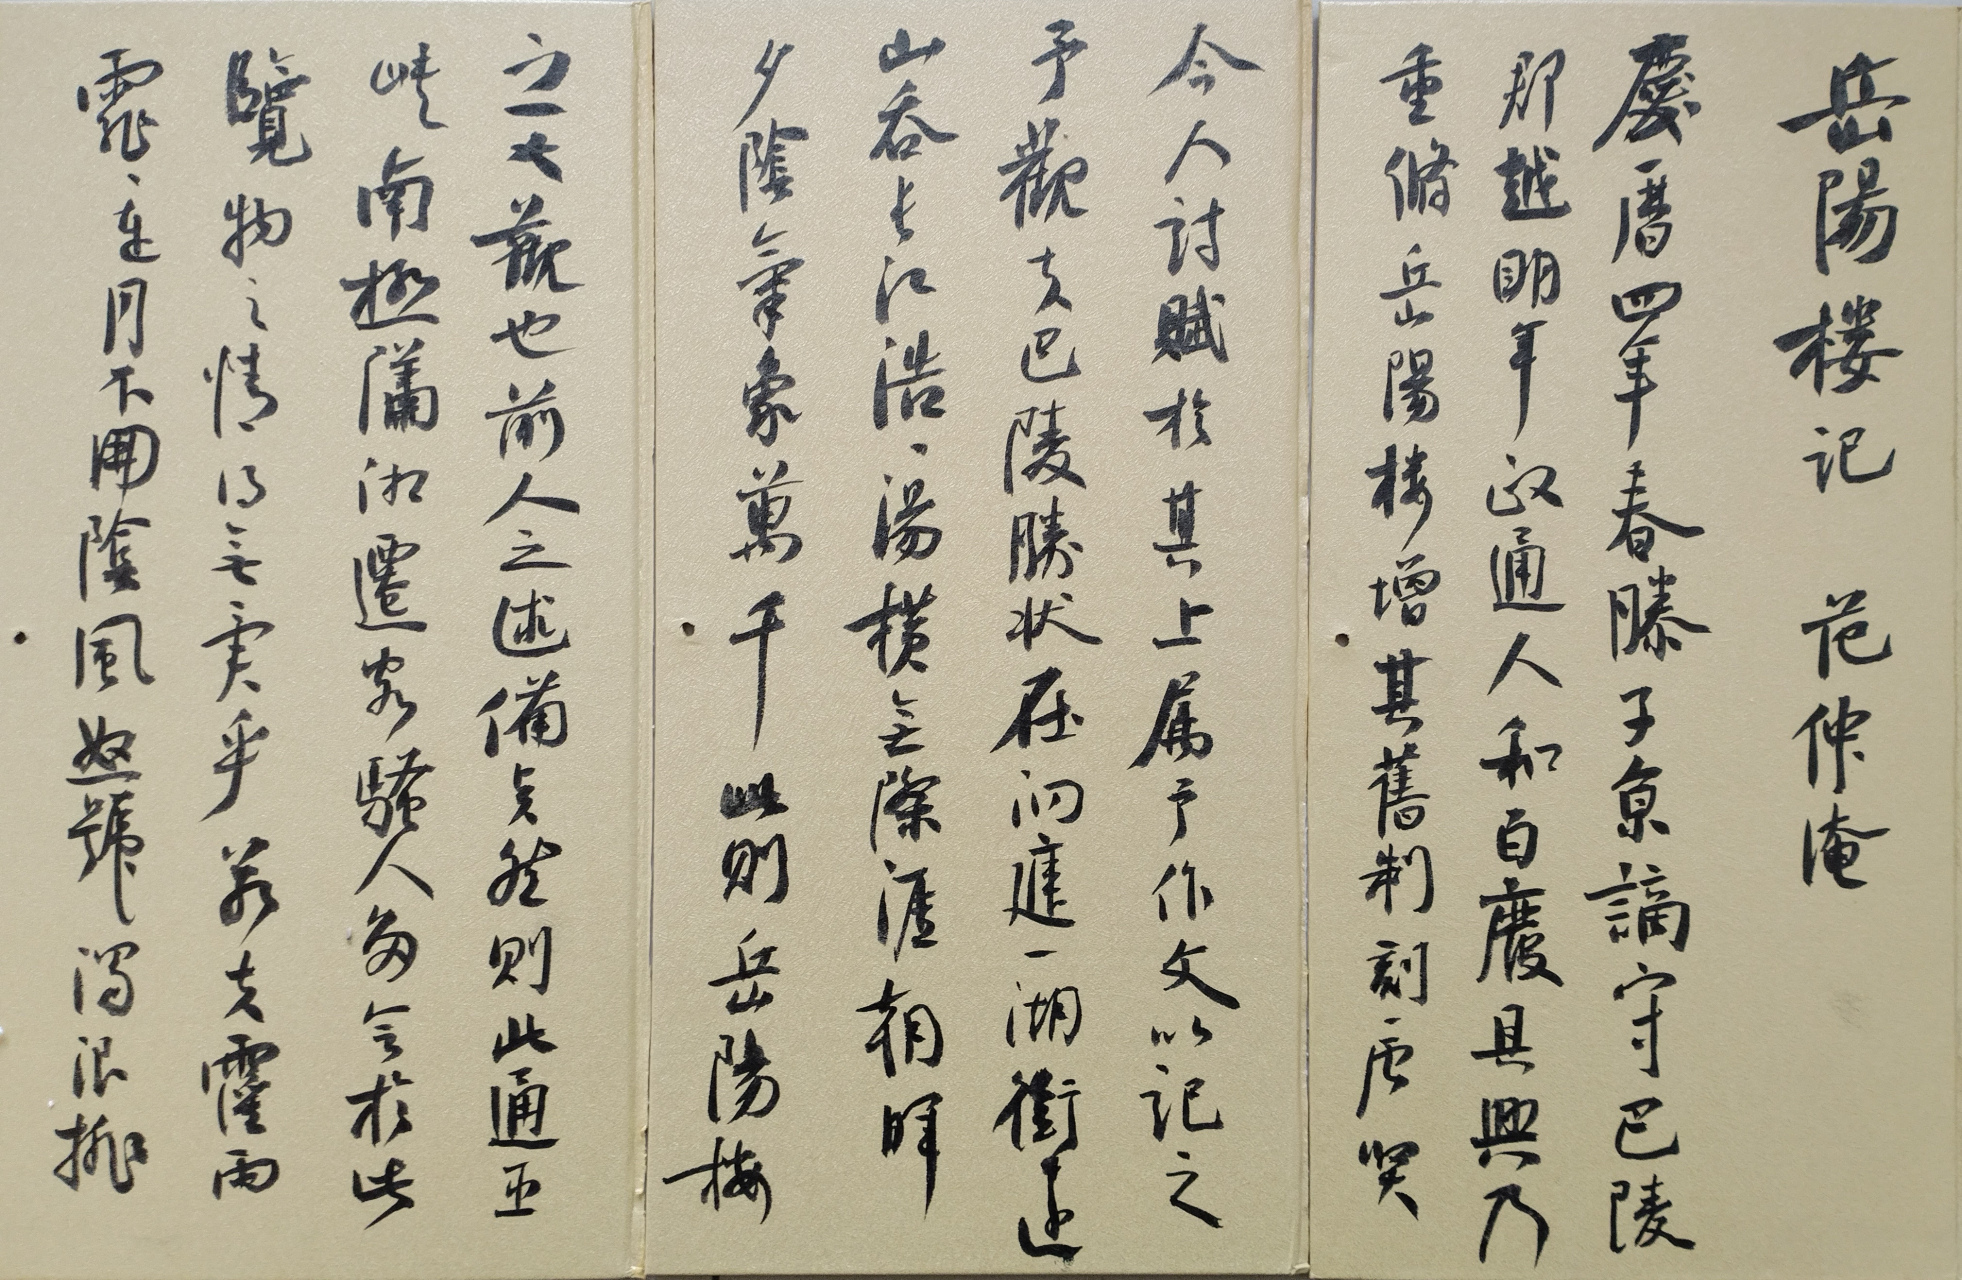 岳陽楼记 范仲淹
慶曆四年春滕子京謫守巴陵
郡越明年政通人和百廢具興乃
重脩岳陽楼增其舊制刻唐贤
今人討賦於其上属予作文以记之
予觀夫巴陵勝状在洞庭一湖衔远
山吞长江浩、湯横无際涯朝暉
夕陰氣象萬千 此則岳陽楼
之大觀也前人之述備矣然則此通巫
峡南極瀟湘遷客騷人多会於此
覽物之情得无異乎若夫霪雨
霏、连月不開陰風怒號濁浪排